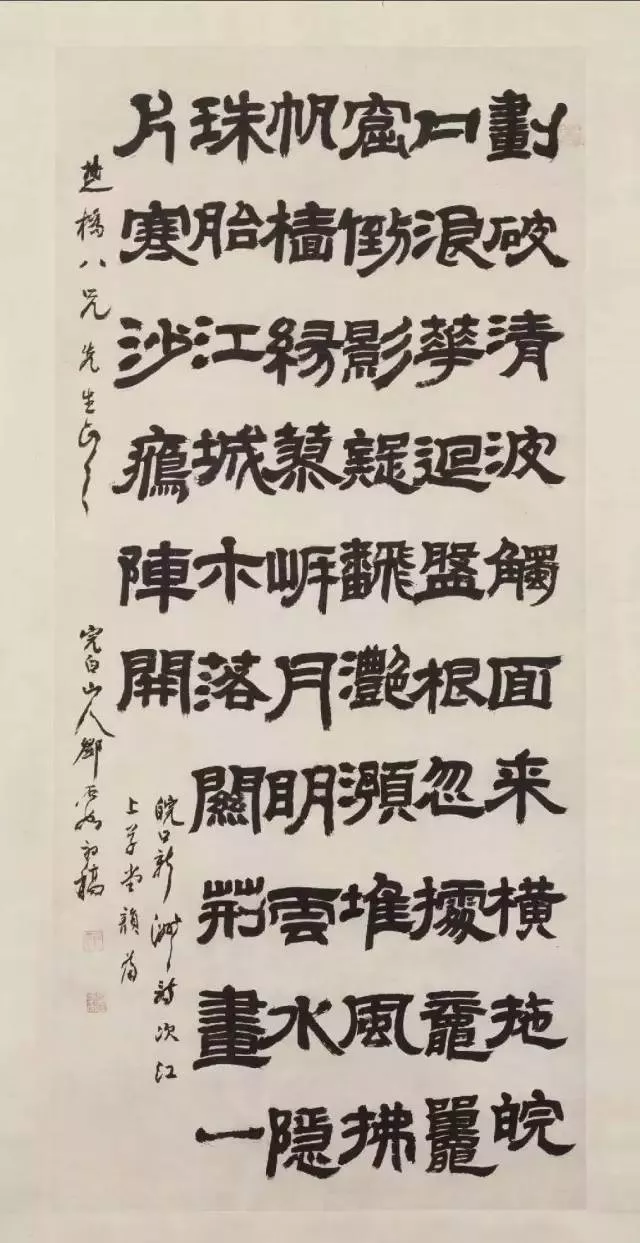 劃破清波觸面来横拖皖
口浪華迴盤根忽據黿鼉
窟倒影疑飜灔澦堆風拂
帆檣縁蓼岸月明雲水隠
珠胎江城木落關荊畫一
片寒沙鴈陣開
皖口新洲詩次江
上草堂韻為
楚橋八兄先生正之
完白山人鄧石如初稿